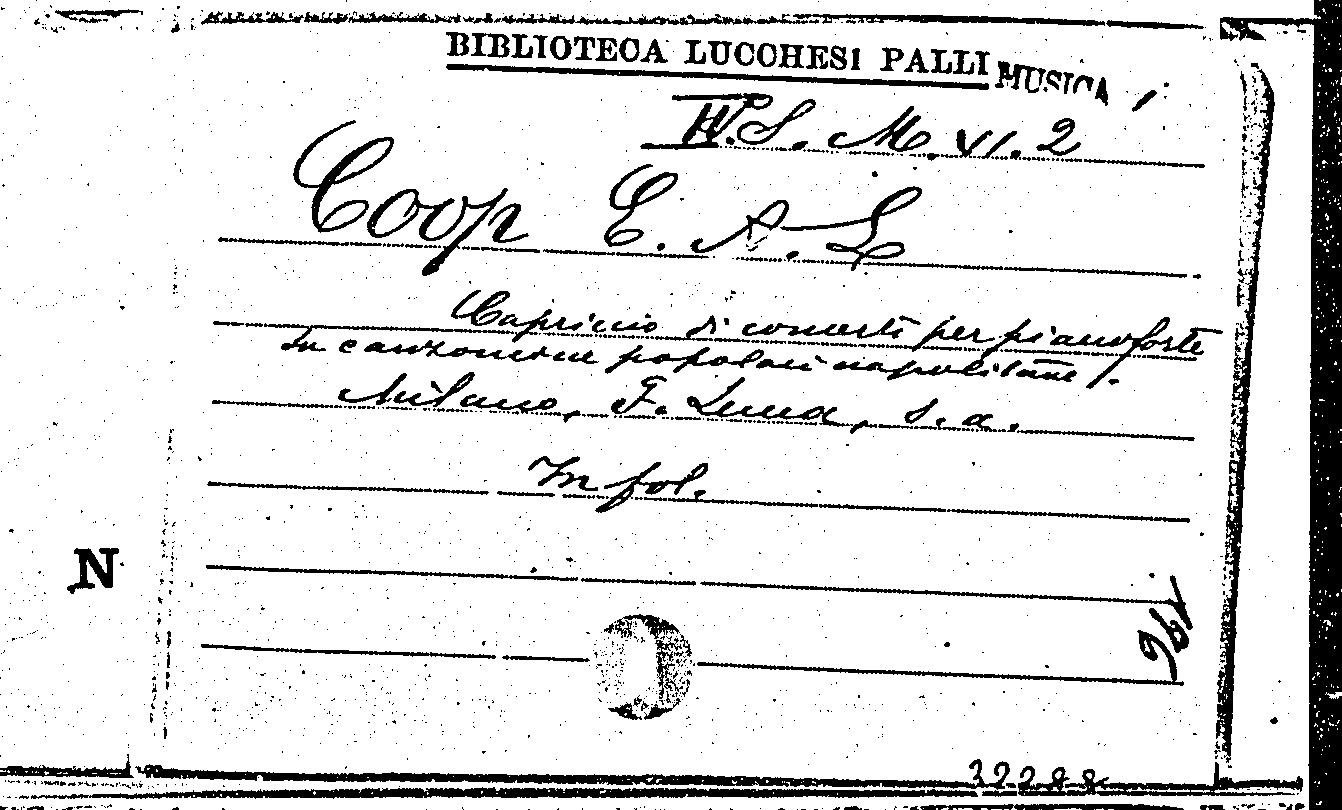 BIBLIOTECA LUCCHESI PALLI MUSICA
IV. S. M. VI. 2
Coop E. A. L
Capriccio di concerto per pianoforte
su canzoncine popolari napolitane /.
Milano, F. Lucca, s. a.
In fol.
N
196
32288